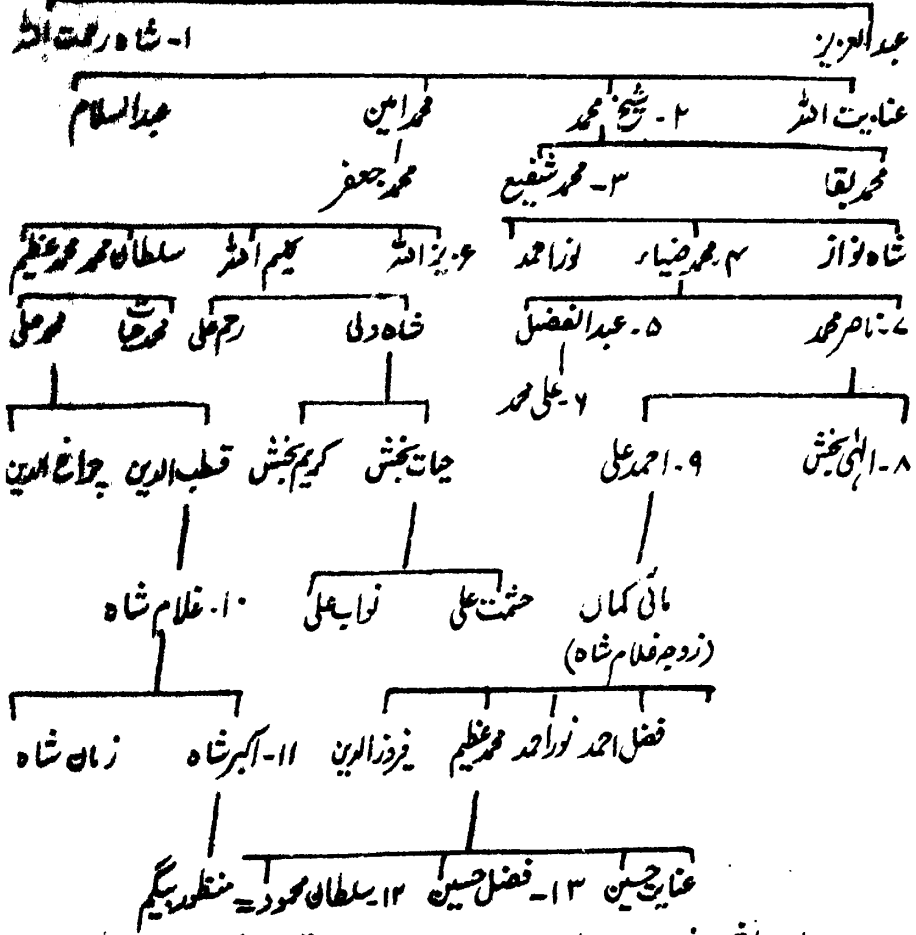 عبدالعزیز ۱۔ شاہ رحمت اللہ
عنایت اللہ ۲۔ شیخ محمد محمد امین عبدالسلام
محمد بقا ۳۔ محمد شفیع محمد جعفر
شاہ نواز ۴۔ محمد ضیاء نور احمد عزیز اللہ کلیم اللہ سلطان محمد محمد عظیم
۷۔ ناصر محمد ۵۔ عبدالفضل شاہ ولی رحم علی محمد حیات محمد علی
۶۔ علی محمد
۸۔ الٰہی بخش ۹۔ احمد علی حیات بخش کریم بخش قطب الدین چراغ الدین
مائی کماں حشمت علی نواب علی ۱۰۔ غلام شاہ
(زوجہ غلام شاہ)
فضل احمد نور احمد محمد عظیم فیروز الدین ۱۱۔ اکبر شاہ زمان شاہ
عنایت حسین ۱۳۔ فضل حسین ۱۲۔ سلطان محمود = منظور بیگم